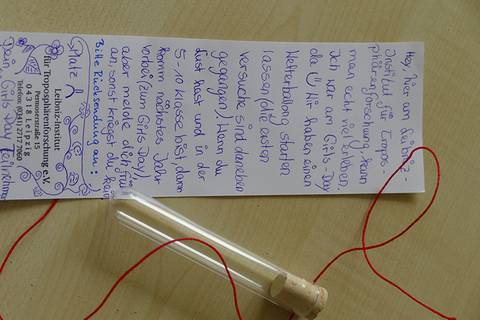 Hey hier am Leibniz-
Institut für Tropos-
phärenforschung kann
man echt viel erleben.
Ich war am Girls-Day
da ☺ Wir haben einen
Wetterballong starten
lassen (die ersten
versuche sind daneben
gegangen) Wenn du
lust hast und in der
5-10 klasse bist dann
komm nächstes Jahr
vorbei (zum Girls-Day),
aber melde dich früh
an, sonst kriegst du kein
Bitte Rücksendung an:
Platz
Leibniz-Institut
für Troposphärenforschung e.V.
Permoserstraße 15
04318 Leipzig
Telefon: (0341) 2717 7060
Dein Girls-Day